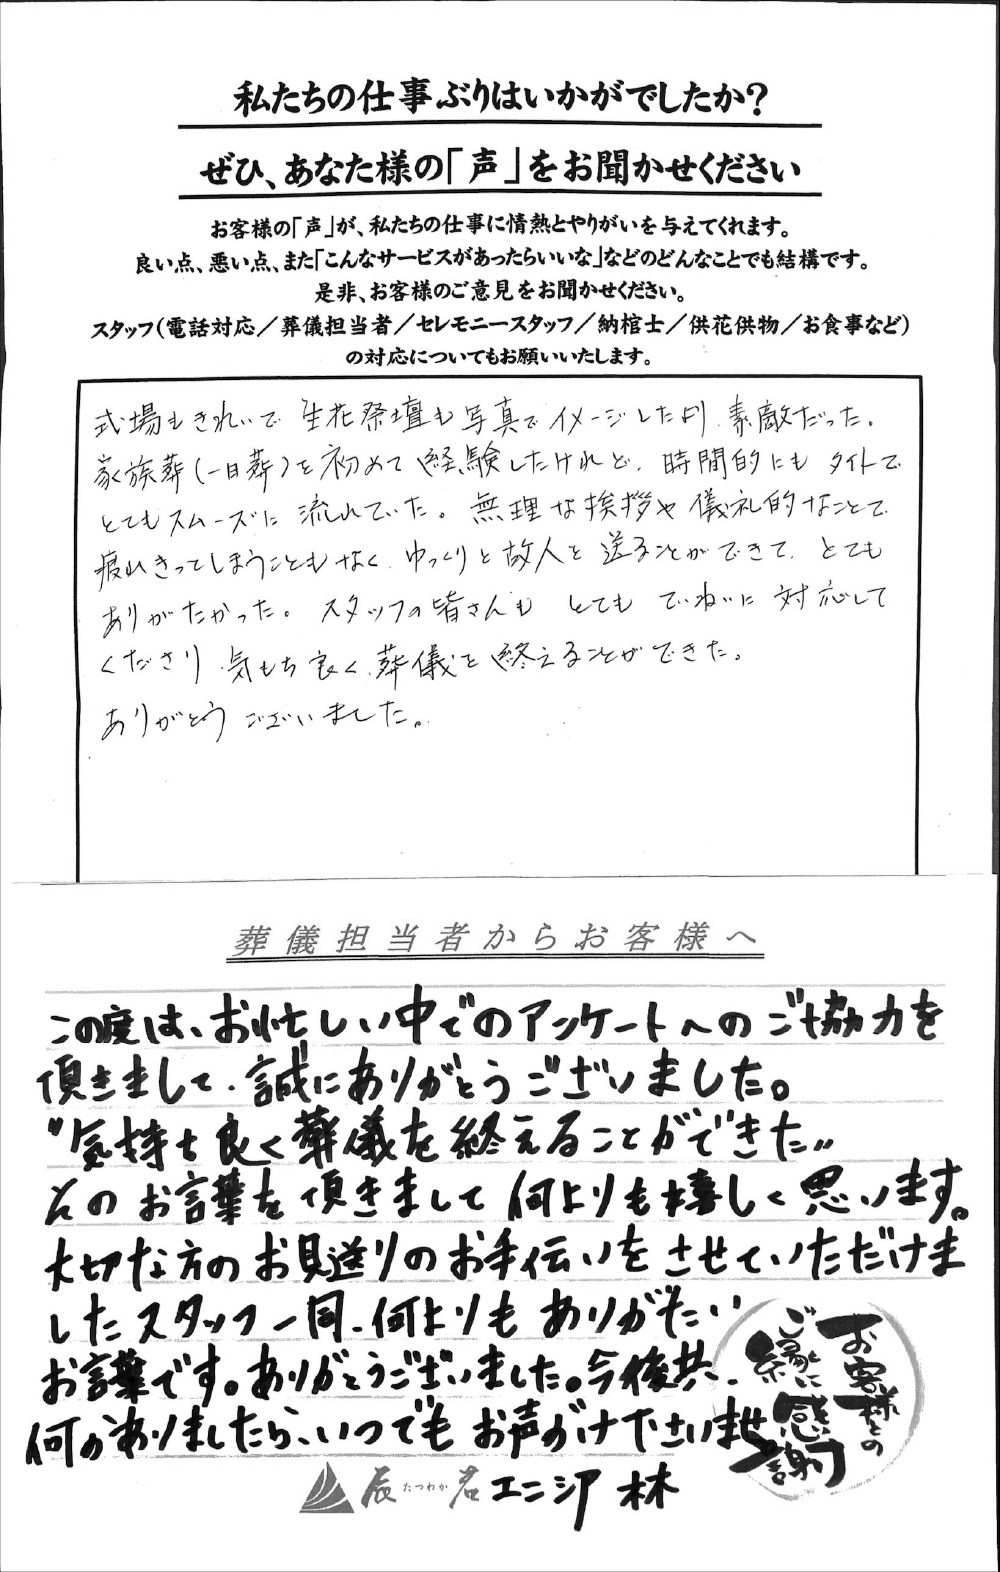 私たちの仕事ぶりはいかがでしたか?
ぜひ、あなた様の「声」をお聞かせください
お客様の「声」が、私たちの仕事に情熱とやりがいを与えてくれます。
良い点、悪い点、また「こんなサービスがあったらいいな」などのどんなことでも結構です。
是非、お客様のご意見をお聞かせください。
スタッフ(電話対応/葬儀担当者/セレモニースタッフ/納棺士/供花供物/お食事など)
の対応についてもお願いいたします。
式場もきれいで 生花祭壇も写真でイメージしたより、素敵だった。
家族葬(一日葬)を初めて経験したけれど、時間的にもタイトで
とてもスムーズに流れていた。無理な挨拶や儀礼的なことで
疲れきってしまうこともなく、ゆっくりと故人を送ることができて、とても
ありがたかった。スタッフの皆さんも とても ていねいに 対応して
くださり、気もち良く葬儀を終えることができた。
ありがとうございました。
葬儀担当者からお客様へ
この度は、お忙しい中でのアンケートへのご協力を
頂きまして、誠にありがとうございました。
"気持ち良く葬儀を終えることができた"
とのお言葉を頂きまして何よりも嬉しく思います。
大切な方のお見送りのお手伝いをさせていただけま
したスタッフ一同、何よりもありがたい
お言葉です。ありがとうございました。今後共、
何かありましたら、いつでもお声がけ下さいませ
お客様との
ご縁に
感謝
辰 たつわか 若 エニシア 林